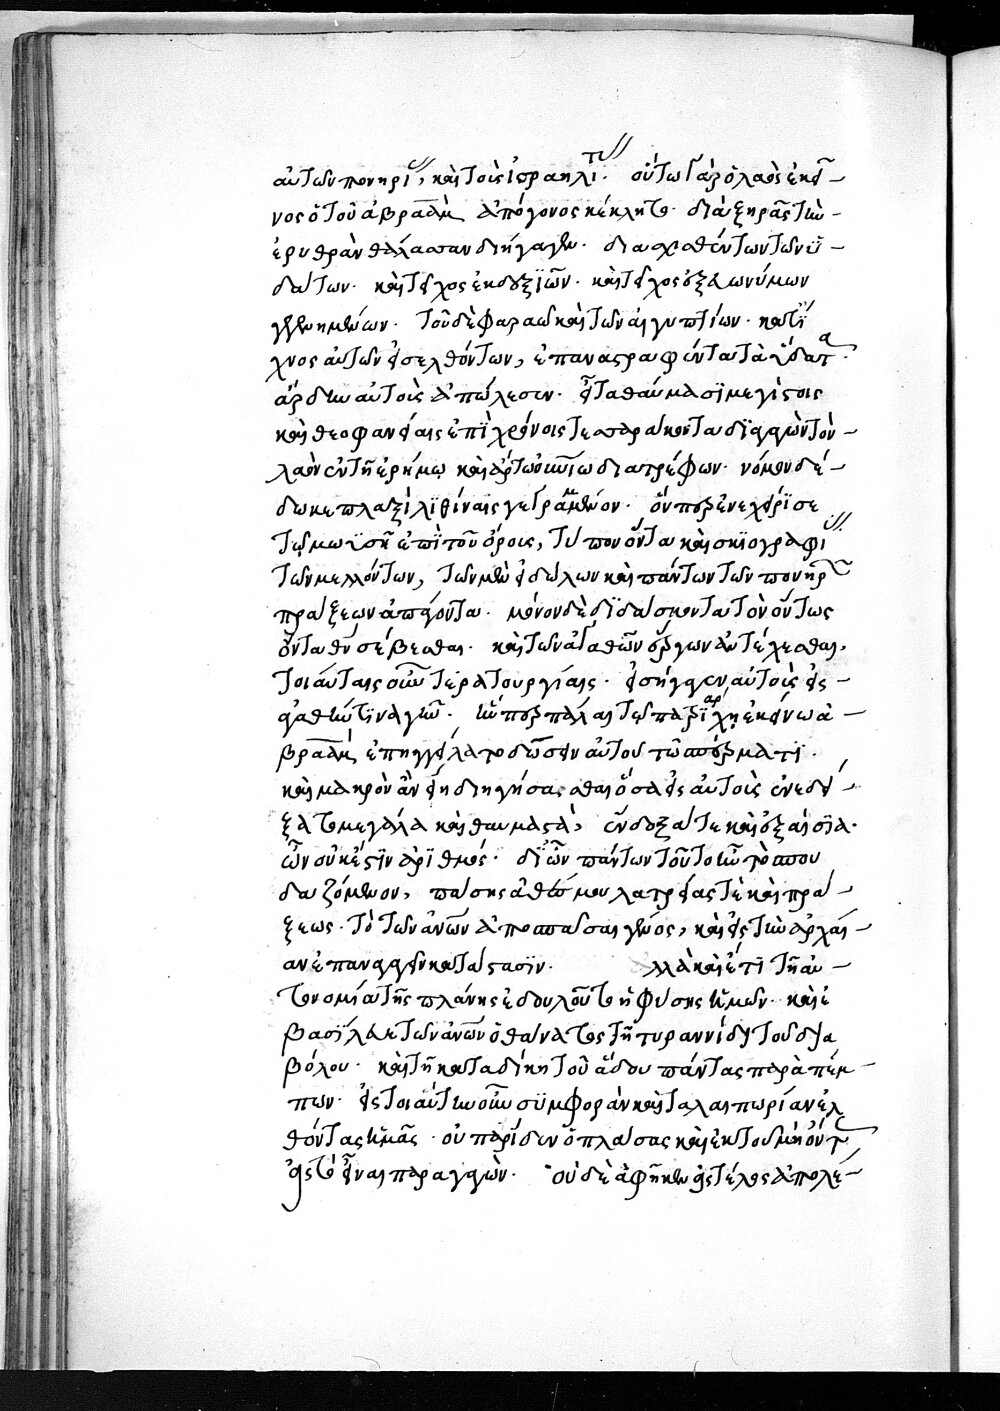 αὐτῶν πονηρί, καὶ τοῖς ἰσραηλίτ. οὕτω γὰρ ὁ λαὸς ἐκεῖ-
νος ὁ τοῦ ἀβραὰμ ἀπόγονος κέκλητο. διὰ ξηρᾶς τὴν
ἐρυθρὰν θάλασσαν διήγαγεν. διαχεθέντων τῶν ὑ-
δάτων. καὶ τεῖχος ἐκ δεξιῶν. καὶ τεῖχος ἐξ εὐωνύμων
γεγενημένων. τοῦ δὲ φαραὼ καὶ τῶν αἰγυπτίων. κατ' ἴ
χνος αὐτῶν εἰσελθόντων, ἐπαναστραφέντα τὰ ὕδατα.
ἄρδην αὐτοὺς ἀπώλεσεν. εἶτα θαύμασι μεγίστοις
καὶ θεοφανείαις ἐπὶ χρόνοις τεσσαράκοντα διάγων τὸν
λαὸν ἐν τῇ ἐρήμῳ καὶ ἄρτῳ οὐνίῳ διατρέφων. νόμον δέ-
δωκε πλαξὶ λιθίναις γεγραμμένον. ὅνπερ ἐνεχείρισε
τῷ μωϊσῇ ἐπὶ τοῦ ὄρους, τύπον ὄντα καὶ σκιογραφί
τῶν μελλόντων, τῶν μὲν εἰδώλων καὶ πάντων τῶν πονηρ
πράξεων ἀπάγοντα. μόνον δὲ διδάσκοντα τὸν ὄντως
ὄντα θν σέβεσθαι. καὶ τῶν ἀγαθῶν ἔργων ἀντέχεσθαι.
τοιαύταις οὖν τερατουργίαις. εἰσήγαγεν αὐτοὺς εἰς
ἀγαθήν τινα γῆν. ἥνπερ πάλαι τῷ πατριάρχῃ ἐκείνῳ ἀ
βραὰμ ἐπηγγείλατο δώσειν αὐτοῦ τῷ σπέρματι.
καὶ μακρὸν ἂν εἴη διηγήσασθαι ὅσα εἰς αὐτοὺς ἐνεδεί-
ξατο μεγάλα καὶ θαυμαστὰ, ἔνδοξά τε καὶ ἐξαίσια.
ὧν οὐκ ἔστιν ἀριθμός. δι' ὧν πάντων τοῦτο ἦν τὸ σπου
δαζόμενον, πάσης ἀθέσμου λατρείας τὲ καὶ πρά-
ξεως. τὸ τῶν ἀνων ἀποσπάσαι γένος, καὶ εἰς τὴν ἀρχαί-
αν ἐπαναγαγεῖν κατάστασιν. λλὰ καὶ ἔτι τῇ αὐ-
τονομίᾳ τῆς πλάνης ἐδουλοῦτο ἡ φύσις ἡμῶν. καὶ ἐ
βασίλευε τῶν ἀνων ὁ θάνατος τῇ τυραννίδι τοῦ δια
βόλου. καὶ τῇ καταδίκῃ τοῦ ἅδου πάντας παραπέμ-
πων. εἰς τοιαύτην οὖν συμφορὰν καὶ ταλαιπωρίαν ἐλ
θόντας ἡμᾶς. οὐ παρεῖδεν ὁ πλάσας καὶ ἐκ τοῦ μὴ ὄντ
εἰς τὸ εἶναι παραγαγών. οὐδὲ ἀφῆκεν εἰς τέλος ἀπολέ-